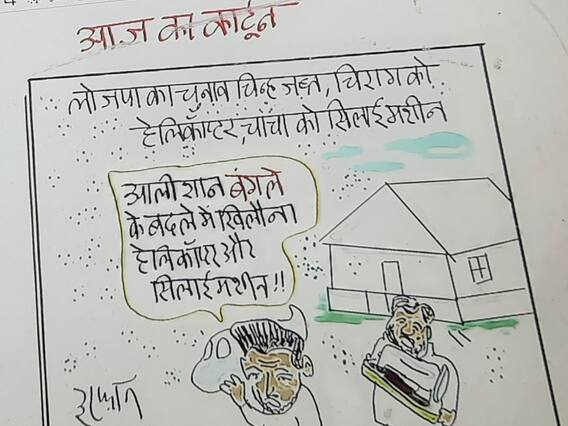 आज का कार्टून
लोजपा का चुनाव चिन्ह जब्त, चिराग को
हेलिकॉप्टर, चाचा को सिलाई मशीन
आलीशान बंगले
के बदले में खिलौना
हेलिकॉप्टर और
सिलाई मशीन!!
इरफान